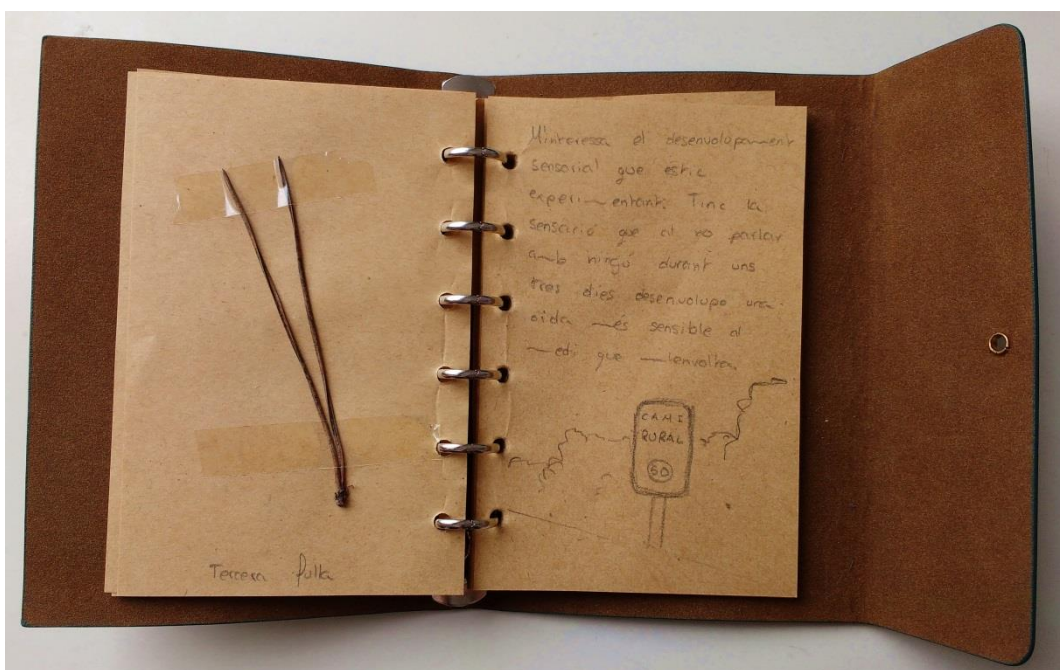 Tercera fulla
M'interessa el desenvolupament
sensorial que estic
experimentant. Tinc la
sensació que al no parlar
amb ningú durant uns
tres dies desenvolupo una
oïda més sensible al
medi que m'envolta.
CAMÍ
RURAL
60